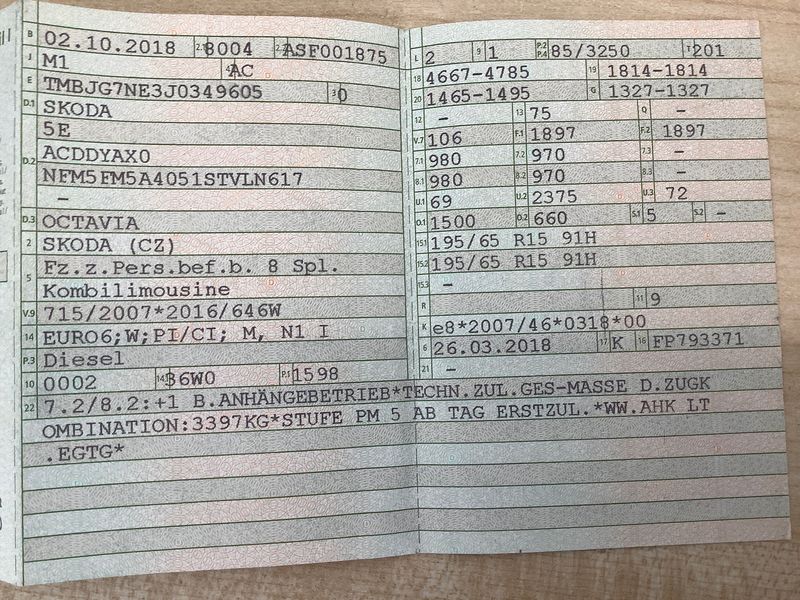 B 02.10.2018 2.1 8004 2.2 ASF001875
J M1 4 AC
E TMBJG7NE3J0349605 3 0
D.1 SKODA
5E
D.2 ACDDYAX0
NFM5FM5A4051STVLN617
–
D.3 OCTAVIA
2 SKODA (CZ)
5 Fz.z.Pers.bef.b. 8 Spl.
Kombilimousine
V.9 715/2007*2016/646W
14 EURO6;W;PI/CI; M, N1 I
P.3 Diesel
10 0002 14.1 36W0 P.1 1598
22 7.2/8.2:+1 B.ANHÄNGEBETRIEB*TECHN.ZUL.GES-MASSE D.ZUGK
OMBINATION:3397KG*STUFE PM 5 AB TAG ERSTZUL.*WW.AHK LT
.EGTG*
L 2 9 1 P.2 P.4 85/3250 T 201
18 4667-4785 19 1814-1814
20 1465-1495 G 1327-1327
12 – 13 75 Q –
V.7 106 F.1 1897 F.2 1897
7.1 980 7.2 970 7.3 –
8.1 980 8.2 970 8.3 –
U.1 69 U.2 2375 U.3 72
O.1 1500 O.2 660 S.1 5 S.2 –
15.1 195/65 R15 91H
15.2 195/65 R15 91H
15.3 –
R 11 9
K e8*2007/46*0318*00
6 26.03.2018 17 K 16 FP793371
21 –